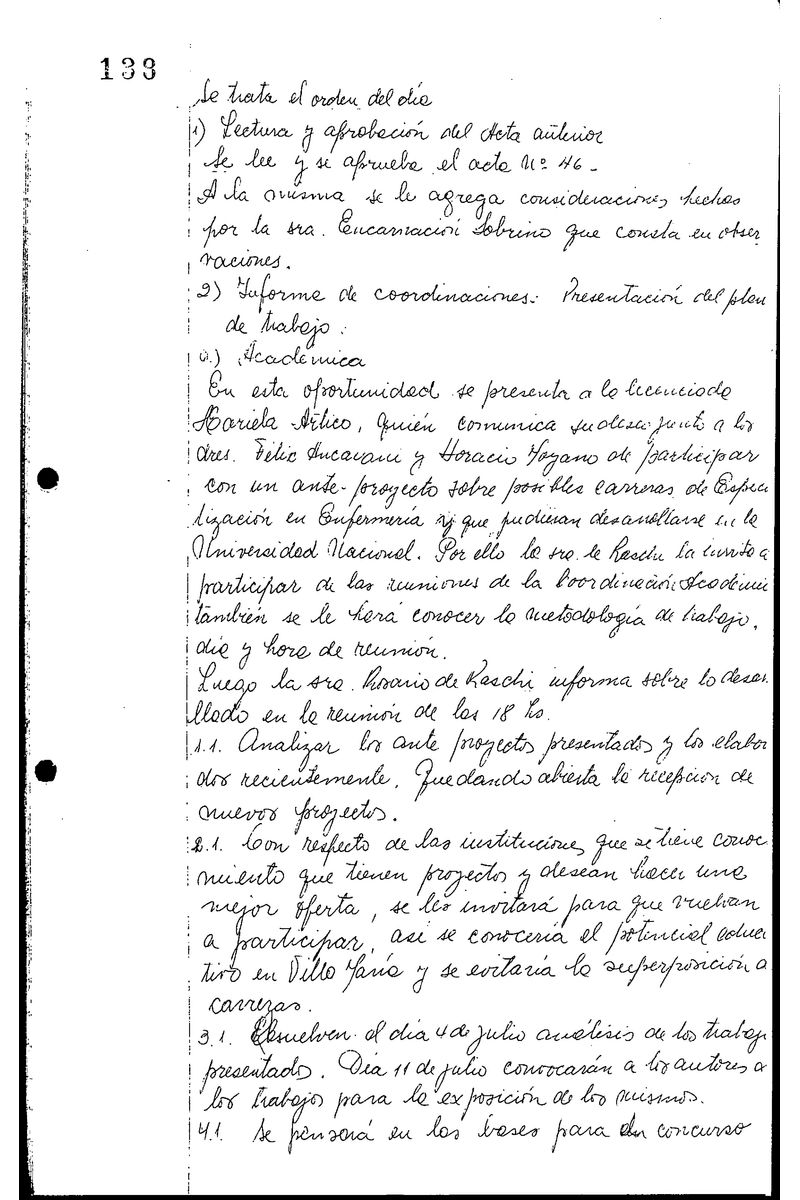 133
Se trata el orden del día
1) Lectura y aprobación del Acta anterior
Se lee y se aprueba el acta Nº 46 -
A la misma se le agrega consideraciones hechas
por la sra. Encarnación Sobrino que consta en obser
vaciones.
2) Informe de coordinaciones. Presentación del plan
de trabajo.
a) Académica
En esta oportunidad se presenta a la licenciada
Mariela Artico, quién comunica su deseo junto a los
dres. Félix y Horacio de participar
con un ante-proyecto sobre posibles carreras de Espec
lización en Enfermería y que pudieran desarrollarse en la
Universidad Nacional. Por ello la sra. de Raschi la invita a
participar de las reuniones de la Coordinación Académi
también se le hará conocer la metodología de trabajo,
día y hora de reunión.
Luego la sra. Rosario de Raschi informa sobre lo desar
llado en la reunión de las 18 hs.
1.1. Analizar los ante proyectos presentados y los elabor
dos recientemente. Quedando abierta la recepción de
nuevos proyectos.
2.1. Con respecto de las instituciones que se tiene conoc
miento que tienen proyectos y desean hacer una
mejor oferta, se les invitará para que vuelvan
a participar, así se conocería el potencial educa
tivo en Villa María y se evitaría la superposición d
carreras.
3.1. Resuelven el día 4 de julio análisis de los trabaj
presentados. Día 11 de julio convocarán a los autores d
los trabajos para la exposición de los mismos.
4.1. Se pensará en las bases para un concurso